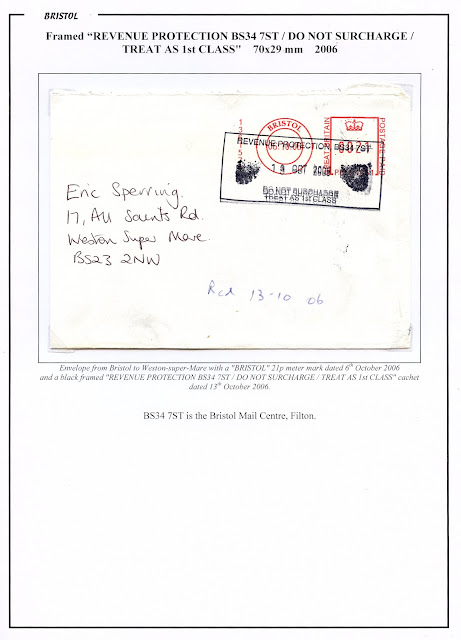 BRISTOL
Framed “REVENUE PROTECTION BS34 7ST / DO NOT SURCHARGE /
TREAT AS 1st CLASS" 70x29 mm 2006
BRISTOL
GREAT BRITAIN
POSTAGE PAID
REVENUE PROTECTION BS34 7ST
13 OCT 2006
DO NOT SURCHARGE
TREAT AS 1st CLASS
Eric Sperring.
17, All Saints Rd.
Weston Super Mare.
BS23 2NW
Rcd 13-10 06
Envelope from Bristol to Weston-super-Mare with a "BRISTOL" 21p meter mark dated 6th October 2006
and a black framed "REVENUE PROTECTION BS34 7ST / DO NOT SURCHARGE / TREAT AS 1st CLASS" cachet
dated 13th October 2006.
BS34 7ST is the Bristol Mail Centre, Filton.